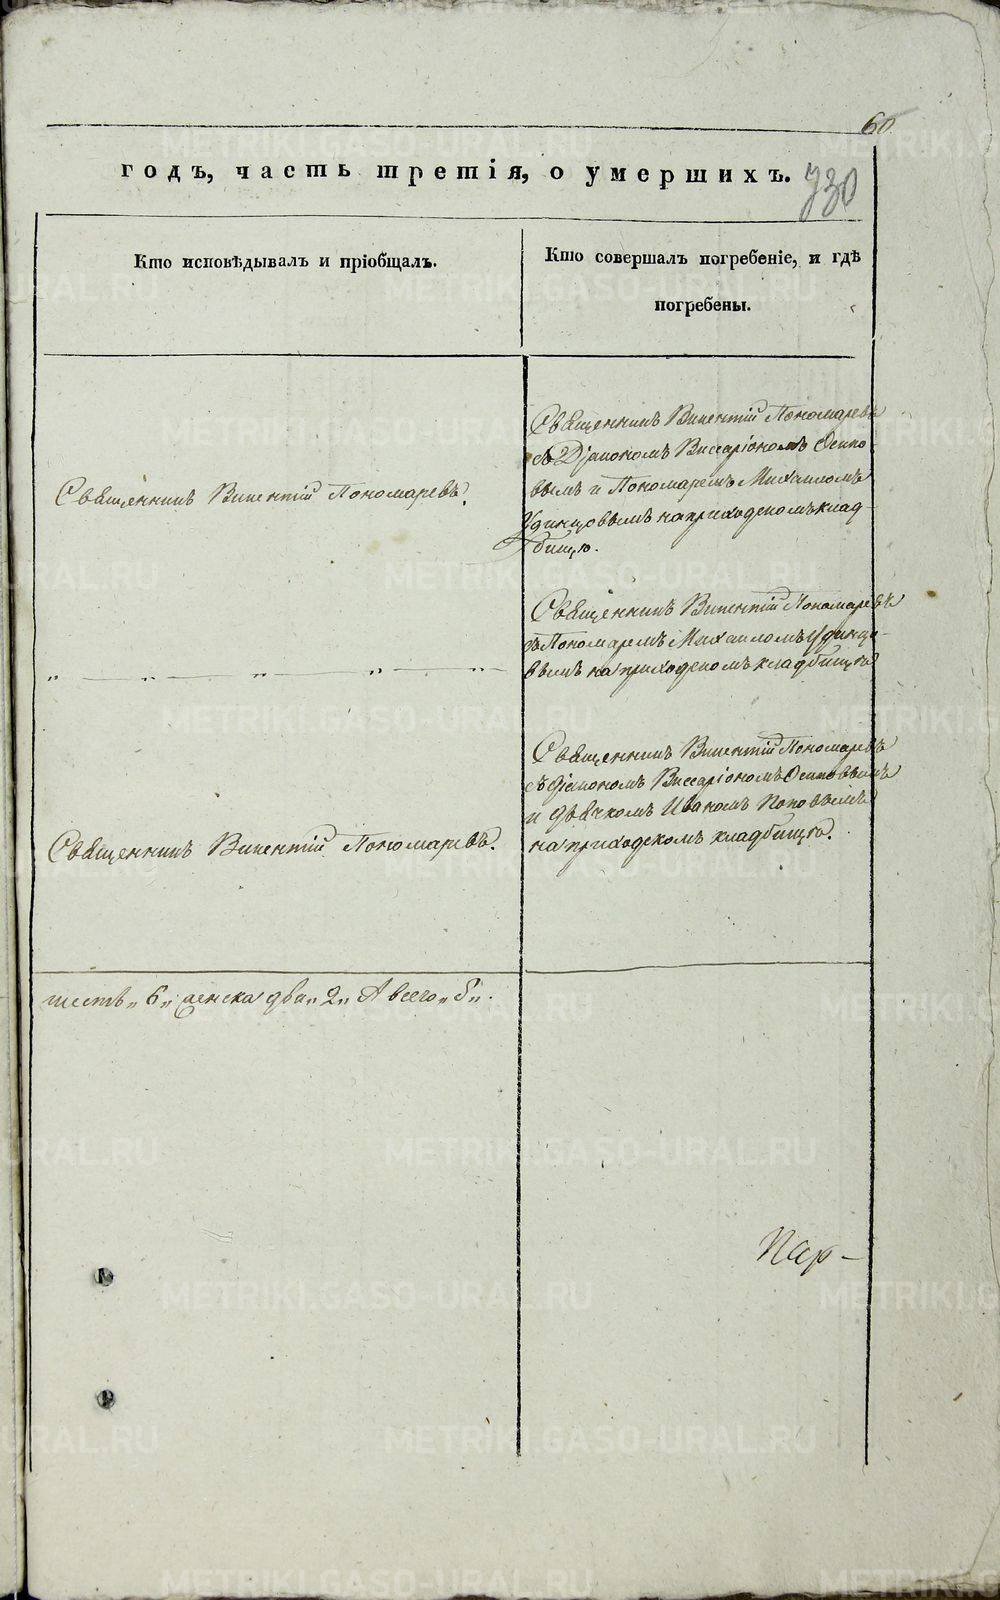 60
годъ, часть третія, о умершихъ.
730
Кто исповѣдывалъ и пріобщалъ.
Кто совершалъ погребеніе, и гдѣ
погребены.
Священникъ Викентій Пономаревъ.
Священникъ Викентій Пономаревъ
съ Діакономъ Виссаріономъ Осипо-
вымъ и Пономаремъ Михаиломъ
Удинцовымъ на приходскомъ клад-
бищѣ.
„ — „ — „ — „ — „
Священникъ Викентій Пономаревъ
съ Пономаремъ Михаиломъ Удинцо-
вымъ на приходскомъ кладбищѣ
Священникъ Викентій Пономаревъ.
Священникъ Викентій Пономаревъ
съ Діакономъ Виссаріономъ Осиповымъ
и дьячкомъ Иваномъ Поповымъ
на приходскомъ кладбищѣ.
шесть „6„ женска два „2„ А всего „8„.
METRIKI.GASO-URAL.RU